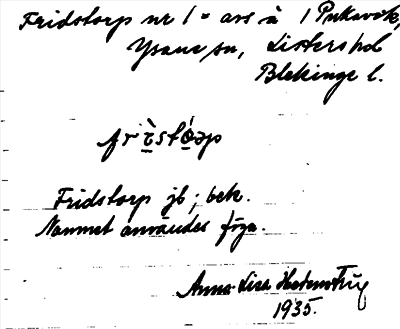 Fridstorp nr 1 = avs å 1 Pukavik,
Ysane sn, Listers hd
Blekinge l.
frìstórp
Fridstorp jb; bek.
Namnet användes föga.
Anna-Lisa
1935.